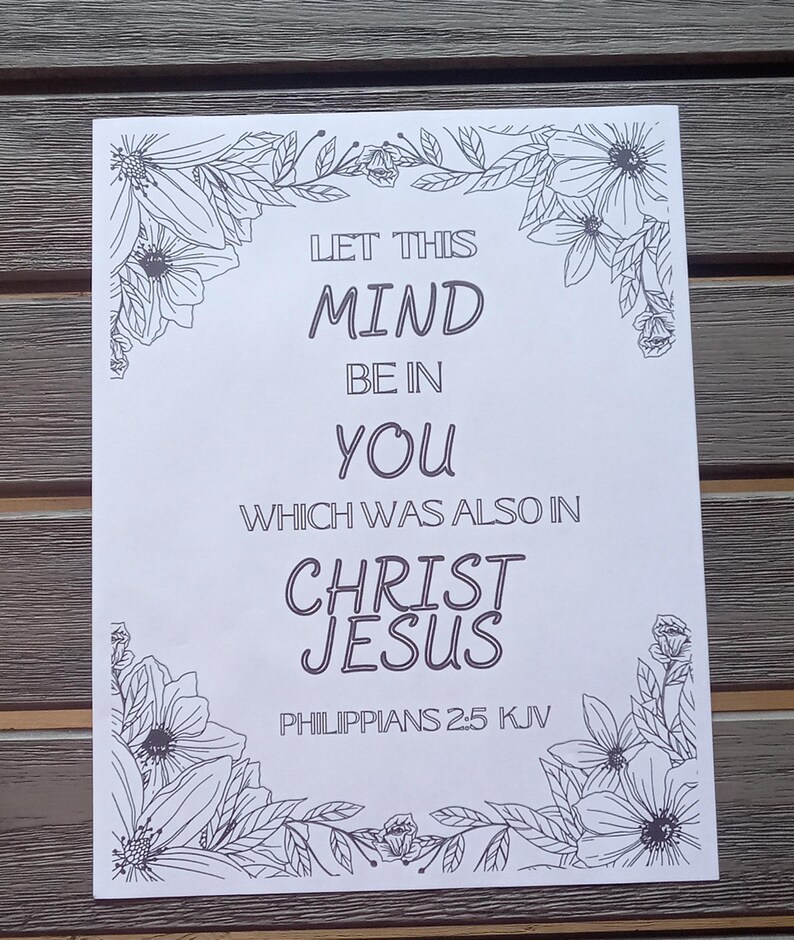 LET THIS
MIND
BE IN
YOU
WHICH WAS ALSO IN
CHRIST
JESUS
PHILIPPIANS 2:5 KJV